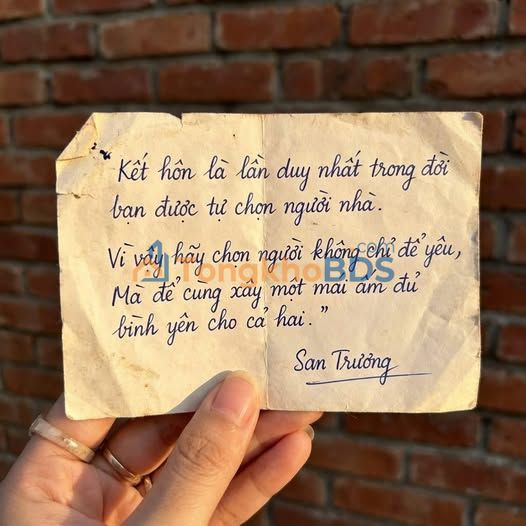 Kết hôn là lần duy nhất trong đời
bạn được tự chọn người nhà.
Vì vậy hãy chọn người không chỉ để yêu,
Mà để cùng xây một mái ấm đủ
bình yên cho cả hai."
San Trương
TongkhoBDS
.com